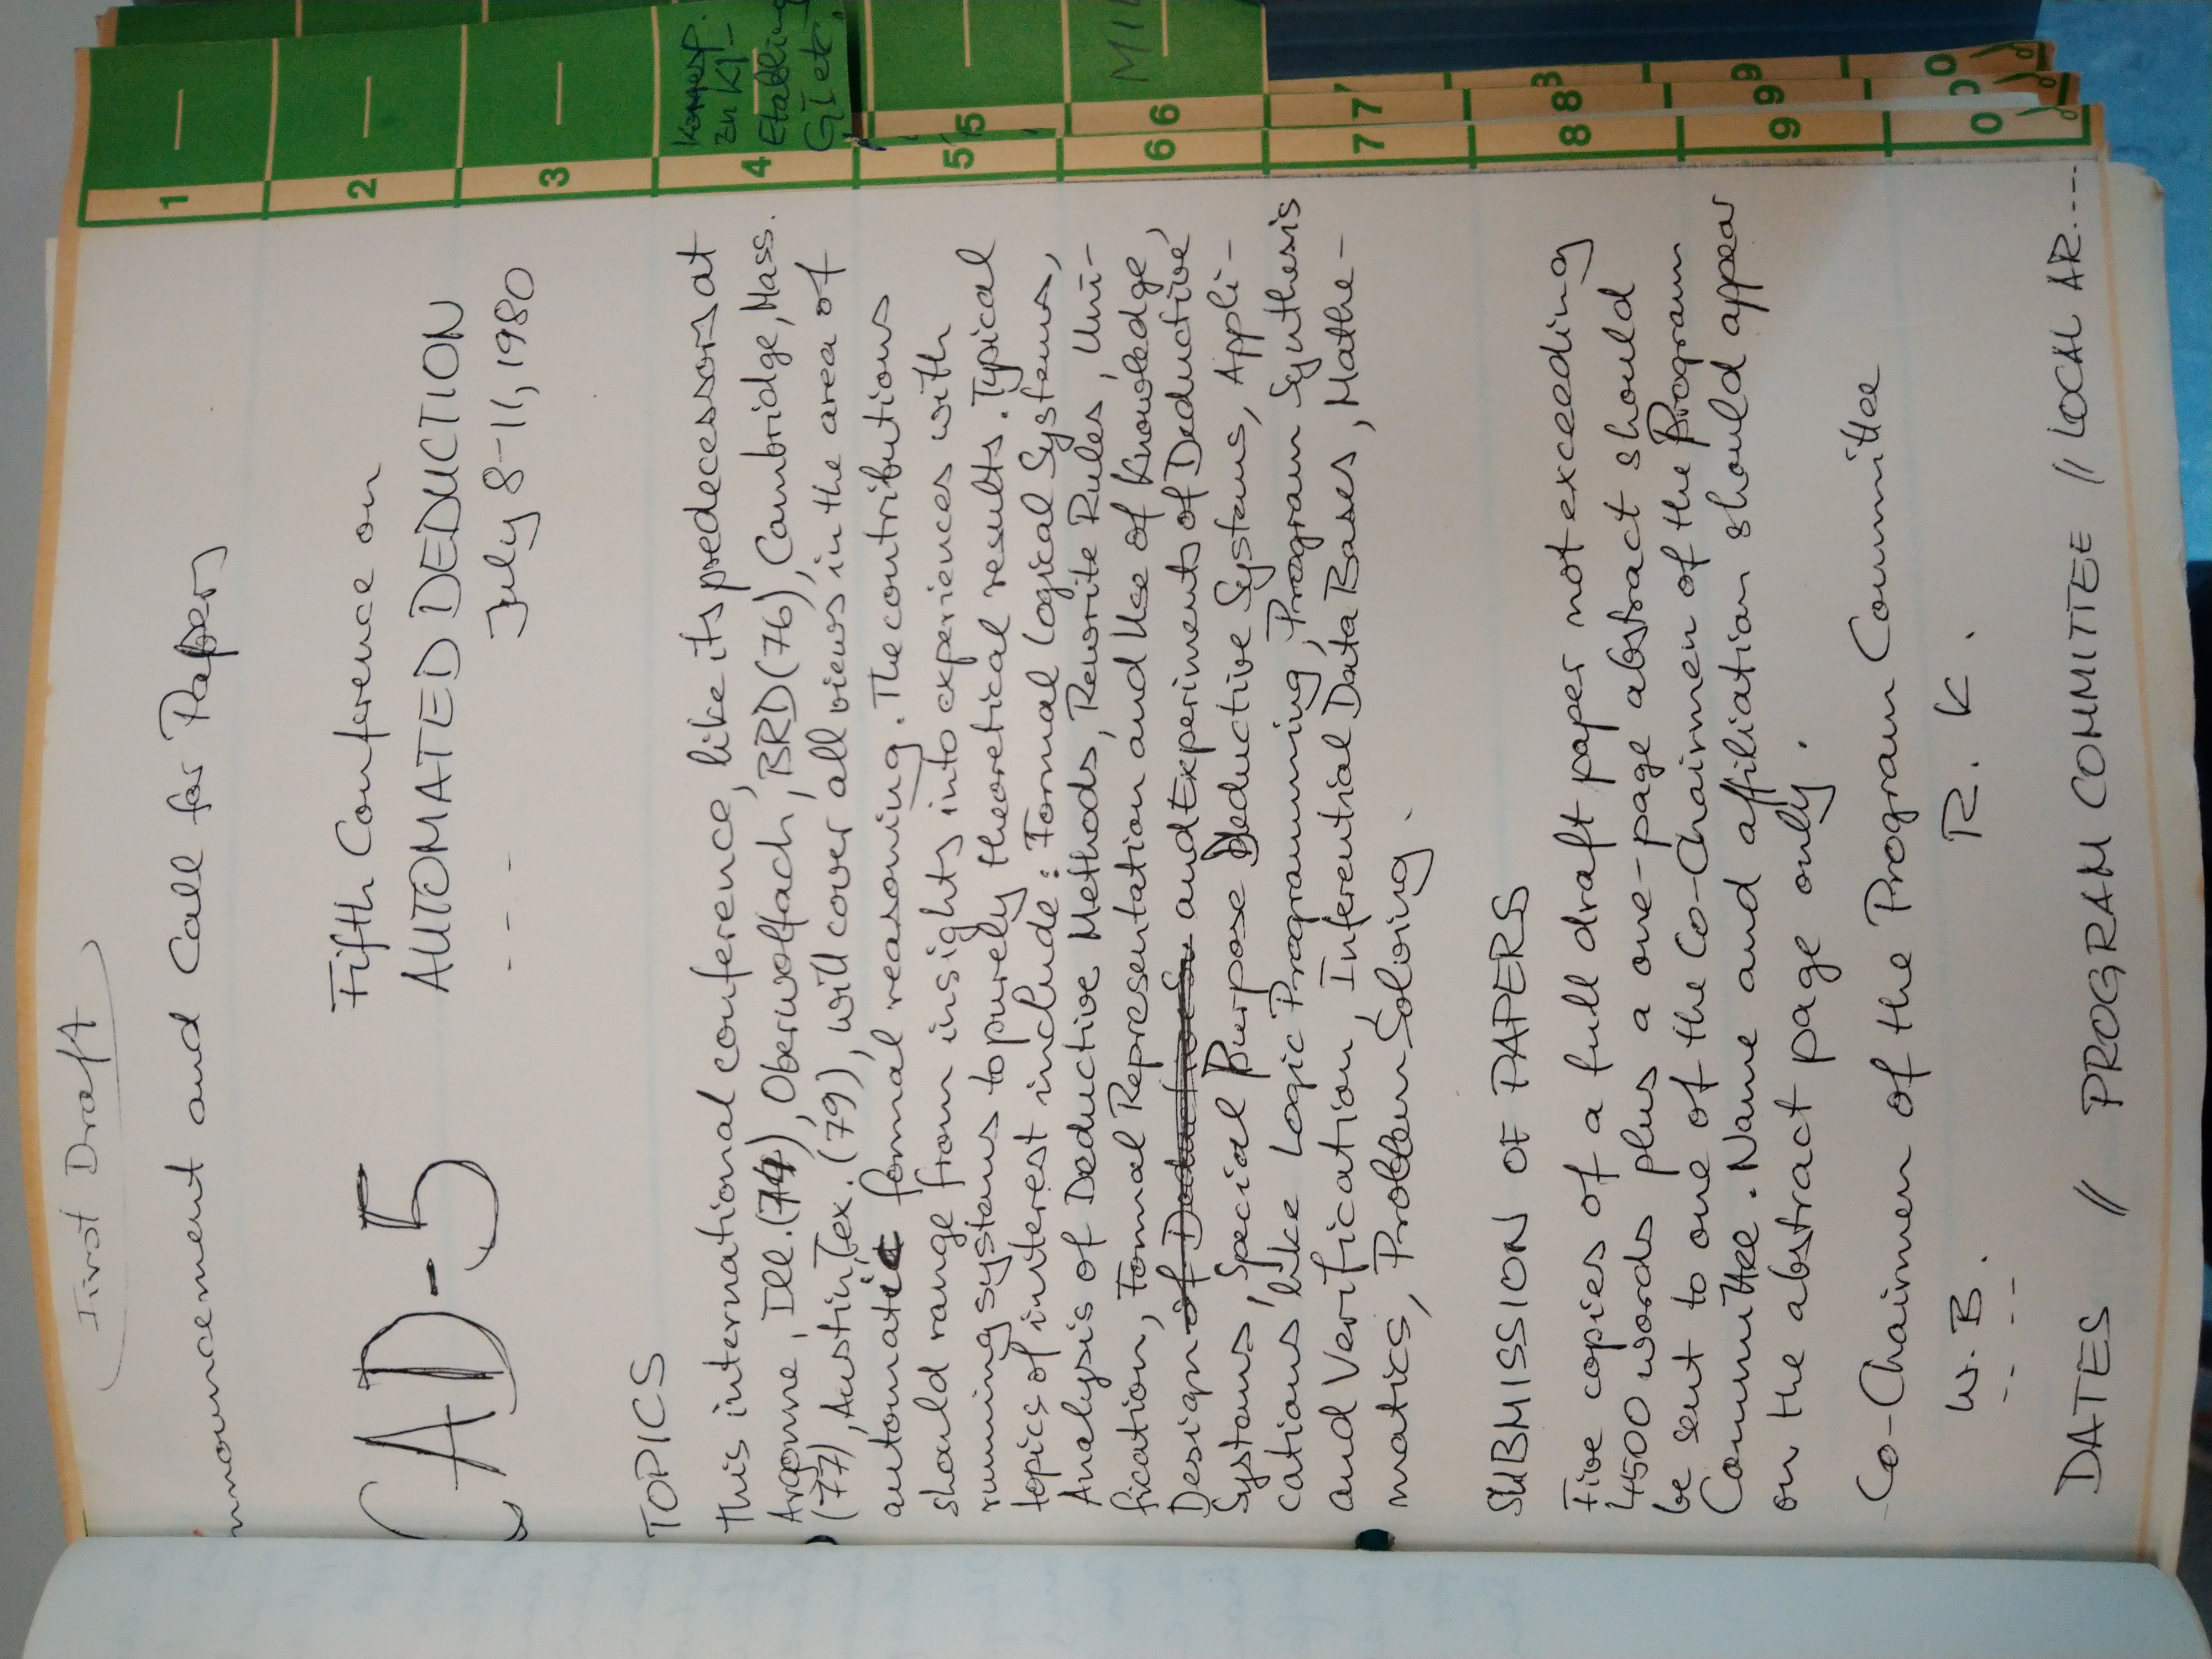 First Draft
nnouncement and Call for Papers
CAD-5
Fifth Conference on
AUTOMATED DEDUCTION
- - - July 8-11, 1980
TOPICS
This international conference, like its predecessors at
Argonne, Ill. (74), Oberwolfach, BRD (76), Cambridge, Mass.
(77), Austin, Tex. (79), will cover all views in the area of
automatic formal reasoning. The contributions
should range from insights into experiences with
running systems to purely theoretical results. Typical
topics of interest include: Formal Logical Systems,
Analysis of Deductive Methods, Rewrite Rules, Uni-
fication, Formal Representation and Use of Knowledge,
Design of Deductive Sy and Experiments of Deductive
Systems, Special Purpose Deductive Systems, Appli-
cations like Logic Programming, Program Synthesis
and Verification, Inferential Data Bases, Mathe-
matics, Problem Solving.
SUBMISSION OF PAPERS
Five copies of a full draft paper not exceeding
4500 words plus a one-page abstract should
be sent to one of the Co-Chairmen of the Program
Committee. Name and affiliation should appear
on the abstract page only.
Co-Chairmen of the Program Committee
W. B. R. K.
-- --
DATES // PROGRAM COMMITTEE // LOCAL AR.----
1
2
3
4
Korresp.
zu KI-
GI etc.
5 5
6 6
7 7 7
8 8 8
9 9 9
0 0 0